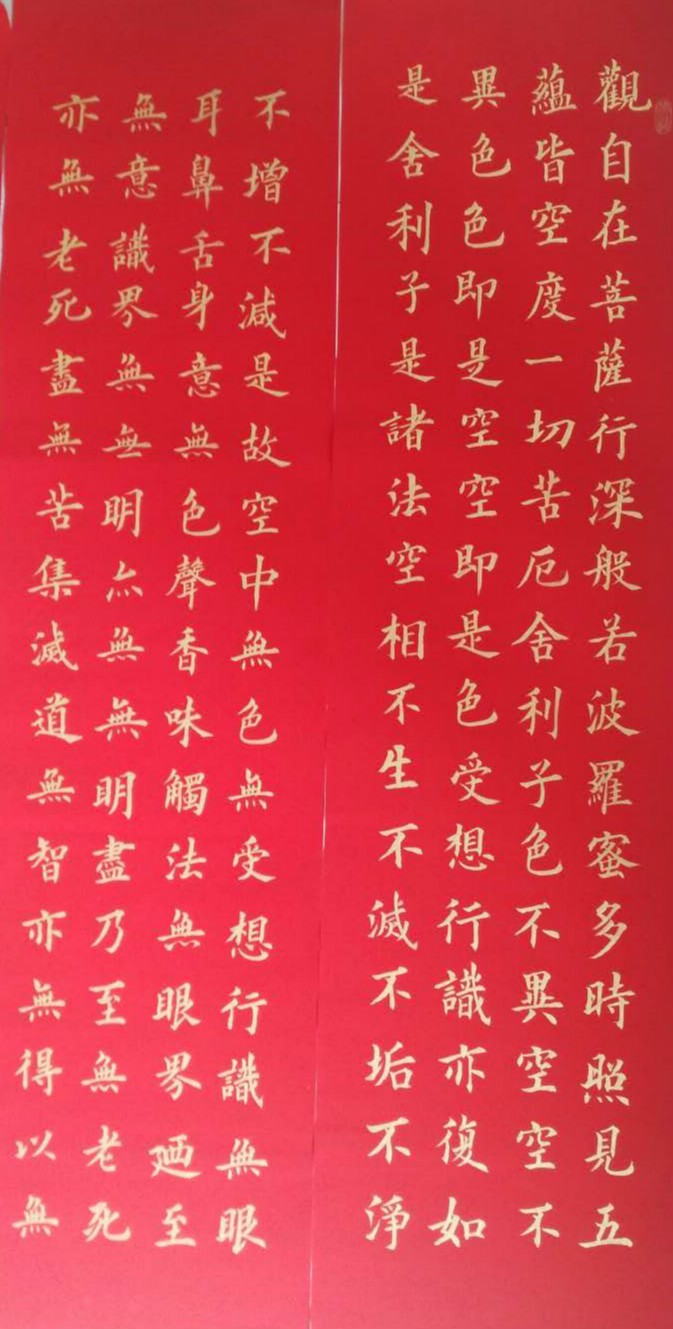 觀自在菩薩行深般若波羅蜜多時照見五
蘊皆空度一切苦厄舍利子色不異空空不
異色色即是空空即是色受想行識亦復如
是舍利子是諸法空相不生不滅不垢不淨
不增不減是故空中無色無受想行識無眼
耳鼻舌身意無色聲香味觸法無眼界廼至
無意識界無無明亦無無明盡乃至無老死
亦無老死盡無苦集滅道無智亦無得以無